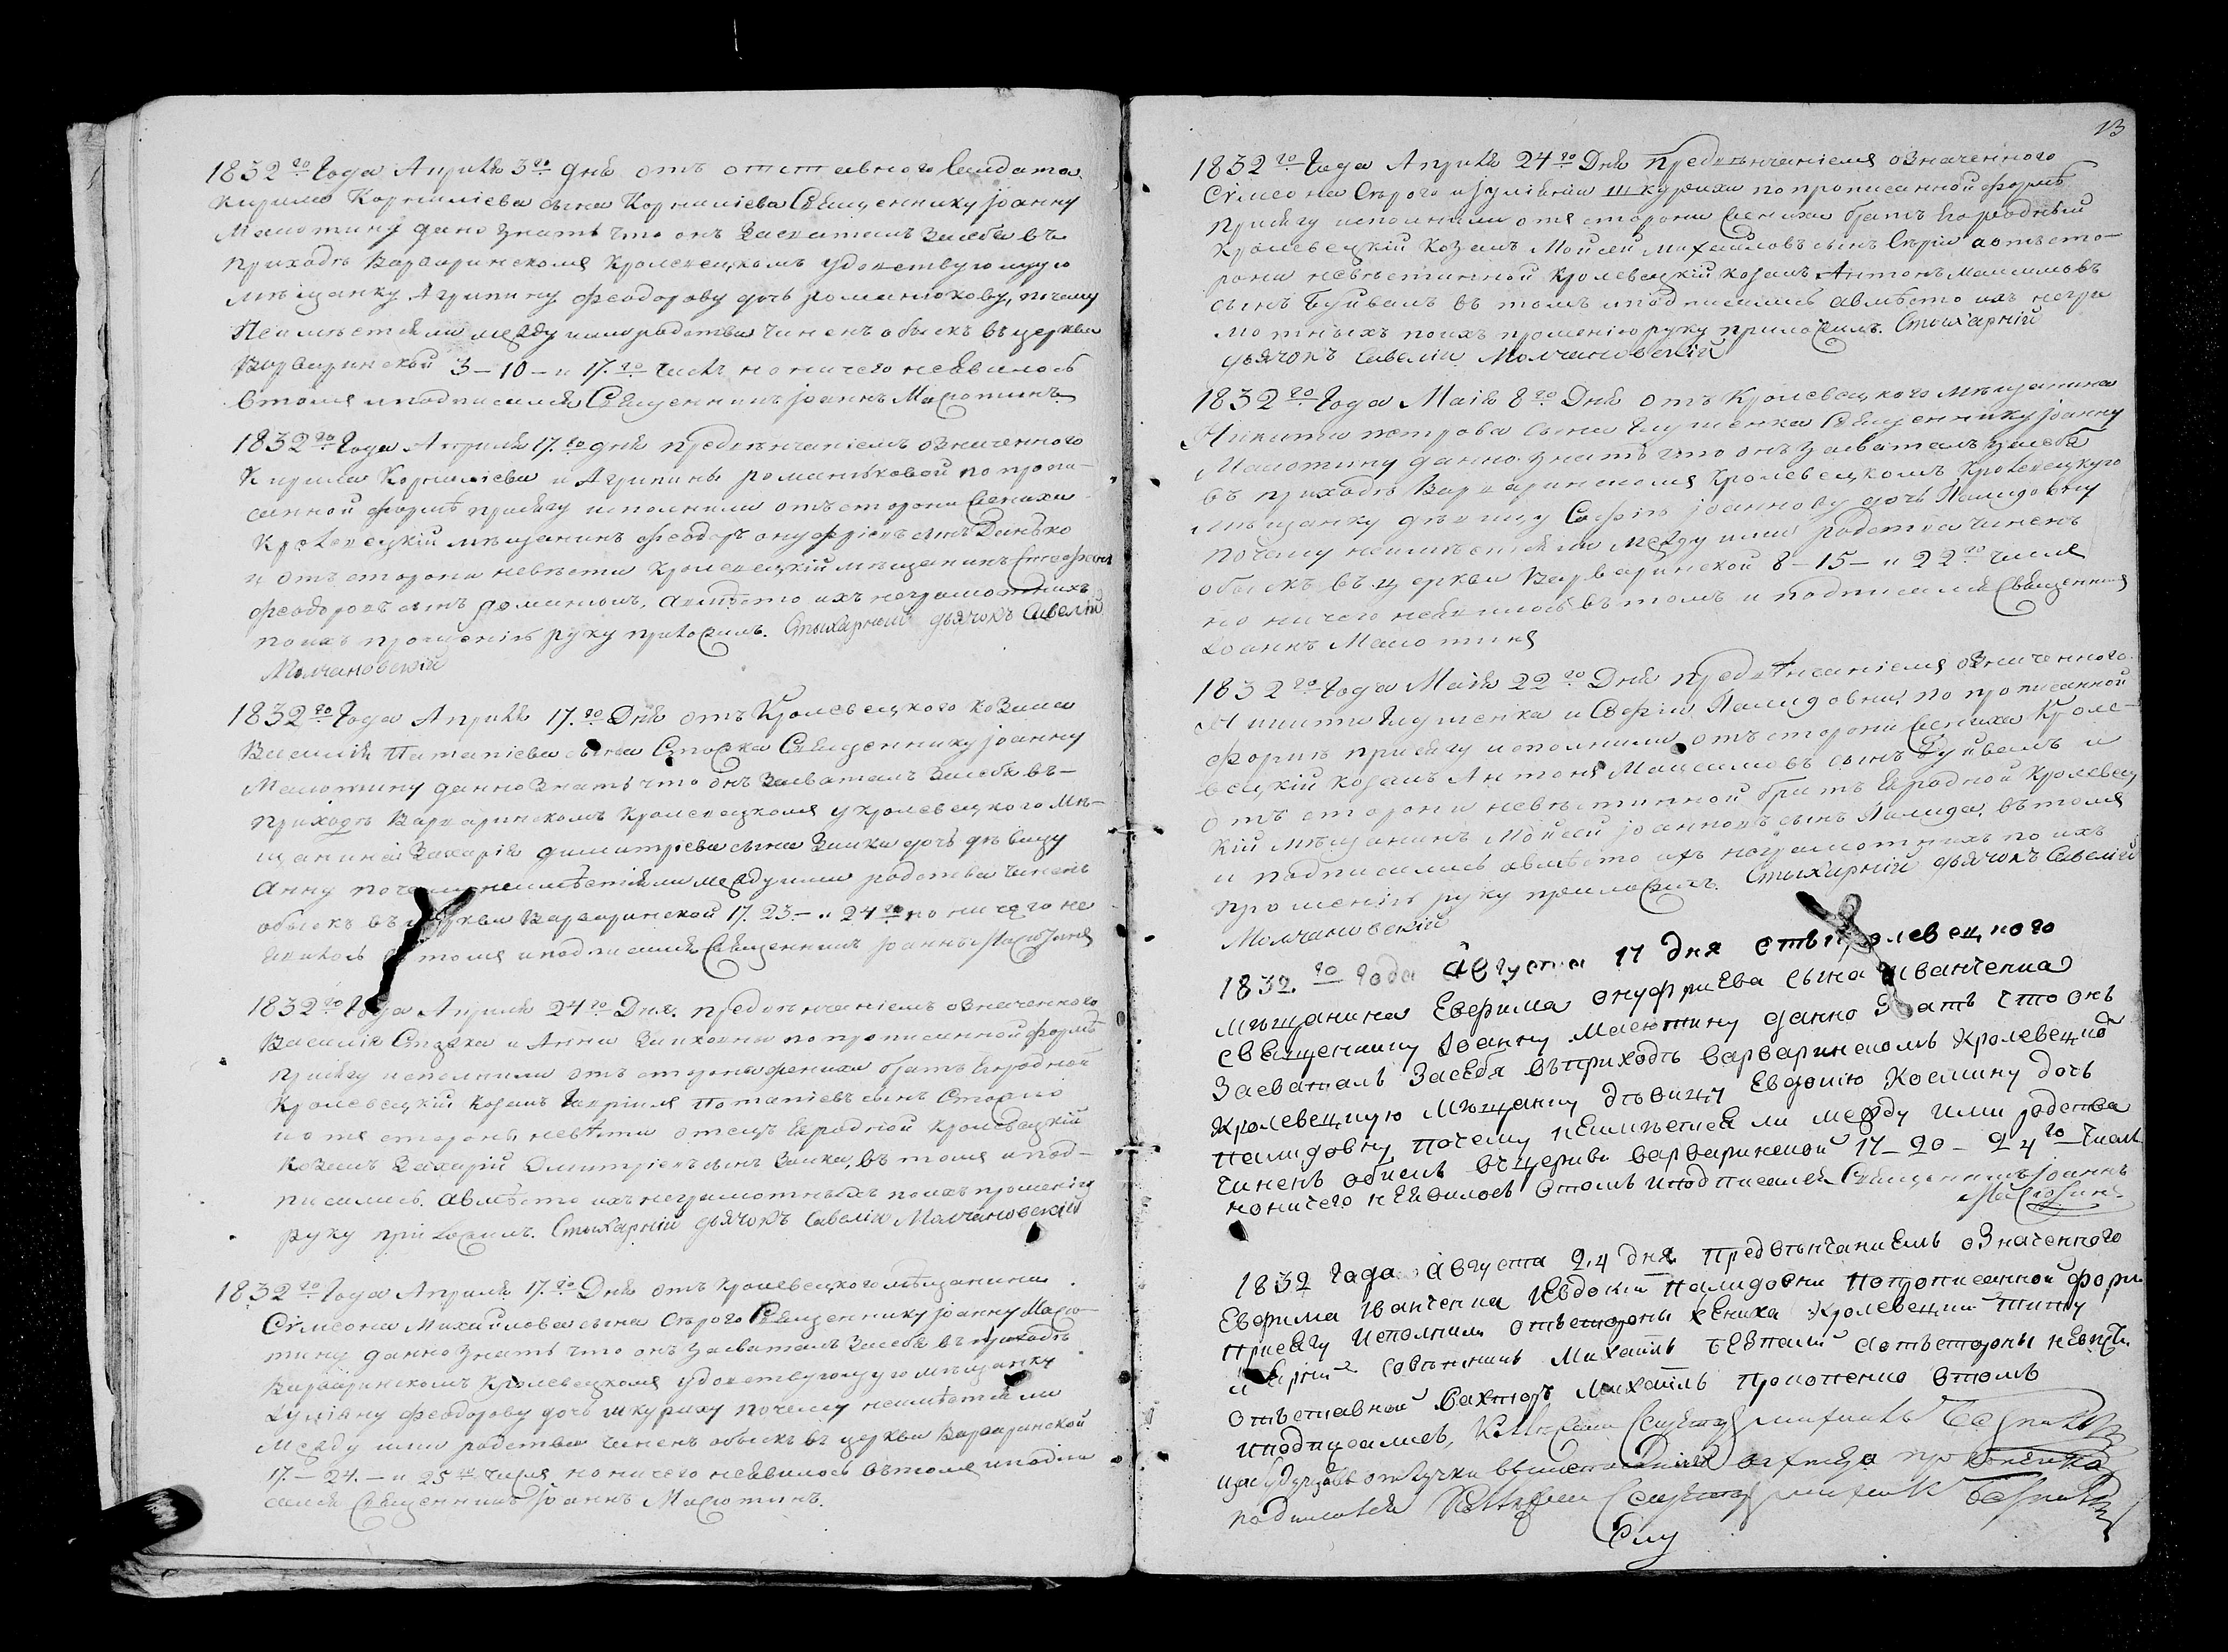 1832го Года Апрѣля 3го дня отъ отставного Салдата
Кирила Корнилiева сына Корнилiева Священнику Iоанну
Масютину дано знать что онъ Засваталъ Засебя въ
приходѣ Варваринскомъ Кролевецкомъ удовствующую
мѣщанку Агрипину феодорову дочь романюкову, почему
Неимѣетсяли между ими родства чиненъ обыскъ въ церкви
Варваринской 3 — 10 — и 17го числъ но ничего неявилось
втомъ иподписался Священникъ Iоаннъ Масютинъ
1832го Года Апрѣля 17го дня предвѣнчанiемъ означенного
Кирила Корнилiева и Агрипины романьковой по пропи-
санной формѣ присягу исполнили отъ стороны жениха
Кролевецкiй мѣщанинъ феодоръ онуфрiевъ сынъ Данько
и отъ стороны невѣсты Кролевецкiй мѣщанинъ
феодоровъ сынъ романюкъ, авмѣсто ихъ неграмотныхъ
поихъ прошенiю руку приложилъ. Стыхарный дьячокъ Савелiй
Молчановскiй
1832го Года Апрѣля 17го Дня отъ Кролевецкого козака
Василiя Потапiева сына Сторжа Священнику Iоанну
Масютину данно Знать что онъ Засваталъ Засебя въ-
приходѣ Варваринскомъ Кролевецкомъ у кролевецкого мѣ-
щанина Захарiя димитрiева сына Заики дочь дѣвицу
Анну почему неимѣетсяли между ими родства чиненъ
обыскъ въ церкви Варваринской 17. 23 — и 24го но ничего не
явилось втомъ иподписался Священникъ Iоаннъ Масютинъ
1832го Года Апрѣля 24го Дня. предвѣнчанiемъ означенного
Василiя Сторжа и Анны Заиковны по прописанной формѣ
присягу исполнили отъ стороны жениха братъ Eгородной
Кролевецкiй козакъ Потапiевъ сынъ
иотъ стороны невѣсты отецъ Eяродной кролевецкiй
козакъ Захарiй Димитрiевъ сынъ Заика, въ томъ и под-
писались. авмѣсто ихъ неграмотныхъ поихъ прошенiю
руку приложилъ. Стыхарный дьячокъ Савелiй Молчановскiй
1832го Года Апрѣля 17го Дня отъ Кролевецкого мѣщанина
Сiмеона Михайлова сына Сѣрого Священнику Iоанну Масю-
тину данно знать что онъ Засваталъ Засебя въ приходѣ
Варваринскомъ Кролевецкомъ удовствующую мѣщанку
феодорову дочь шкуриху почему неимѣетсяли
между ими родства чиненъ обыскъ въ церкви Варваринской
17. — 24. — и 25 числа но ничего неявилось втомъ иподпи
сался Священникъ Iоаннъ Масютинъ.
13
1832го Года Апрѣля 24го Дня предвѣнчанiемъ означенного
Сiмеона Сѣрого и шкурихи по прописанной формѣ
присягу исполнили отъ стороны жениха братъ Eгородный
Кролевецкiй козакъ Мойсей михайловъ сынъ Сѣрiй аотъ сто-
роны невѣстинной кролевецкiй козакъ Антонъ Максимовъ
сынъ Буйвалъ въ томъ иподписались авмѣсто ихъ негра
мотныхъ поихъ прошенiю руку приложилъ. Стыхарнiй
дьячокъ Савелiй Молчановскiй
1832го Года Маiя 8го Дня отъ Кролевецкого мѣщанина
Никиты петрова сына Глушенка Священнику Iоанну
Масютину данно Знать что онъ Засваталъ Засебя
въ приходѣ Варваринскомъ Кролевецкомъ Кролевецкую
мѣщанку дѣвицу Софiю Iоаннову дочь Палидовну
почему неимѣетсяли между ими родства чиненъ
обыскъ въ церкви Варваринской 8 — 15 — и 22го числа
но ничего неявилось въ томъ и подписался Священникъ
Iоаннъ Масютинъ
1832го Года Маiя 22го Дня предвѣнчанiемъ означенного
Никиты Глушенка и Софiи Палидовны, по прописанной
формѣ присягу исполнили отъ стороны жениха Кроле-
вецкiй козакъ Антонъ Максимовъ сынъ Буйвалъ и
отъ стороны невѣстинной братъ Eяродной Кролевец
кiй мѣщанинъ Мойсей Iоанновъ сынъ Палида, въ томъ
и подписались авмѣсто ихъ неграмотныхъ по ихъ
прошенiю руку приложилъ. Стыхарнiй дьячокъ Савелiй
Молчановскiй
1832.го Года Августа 17 дня отъ кролевецкого
мѣщанина Евфима онуфриева сына иванченка
священнику Iоанну Масютину данно Знать что онъ
Засваталъ Засебя въ приходѣ варваринскомъ Кролевецко
Кролевецкую мѣщанку дѣвицу Евдокiю Космину дочь
палидовну, почему неимѣется ли между ими родства
чиненъ обыскъ въ церкви варваринской 17 — 20 — 24го числ
но ничего неявилось втомъ иподписался Священникъ Iоаннъ
Масютинъ
1832 Года Августа 24 дня Предвѣнчаниемъ означенного
Евфима Иванченка и Евдокiи Палидовни попрописанной форм
присягу исполнили отъстороны жениха Кролевецкий
Михаилъ аотъстороны невѣсти
отъставной Вахторъ Михаилъ Прокопенко втомъ
иподписались,